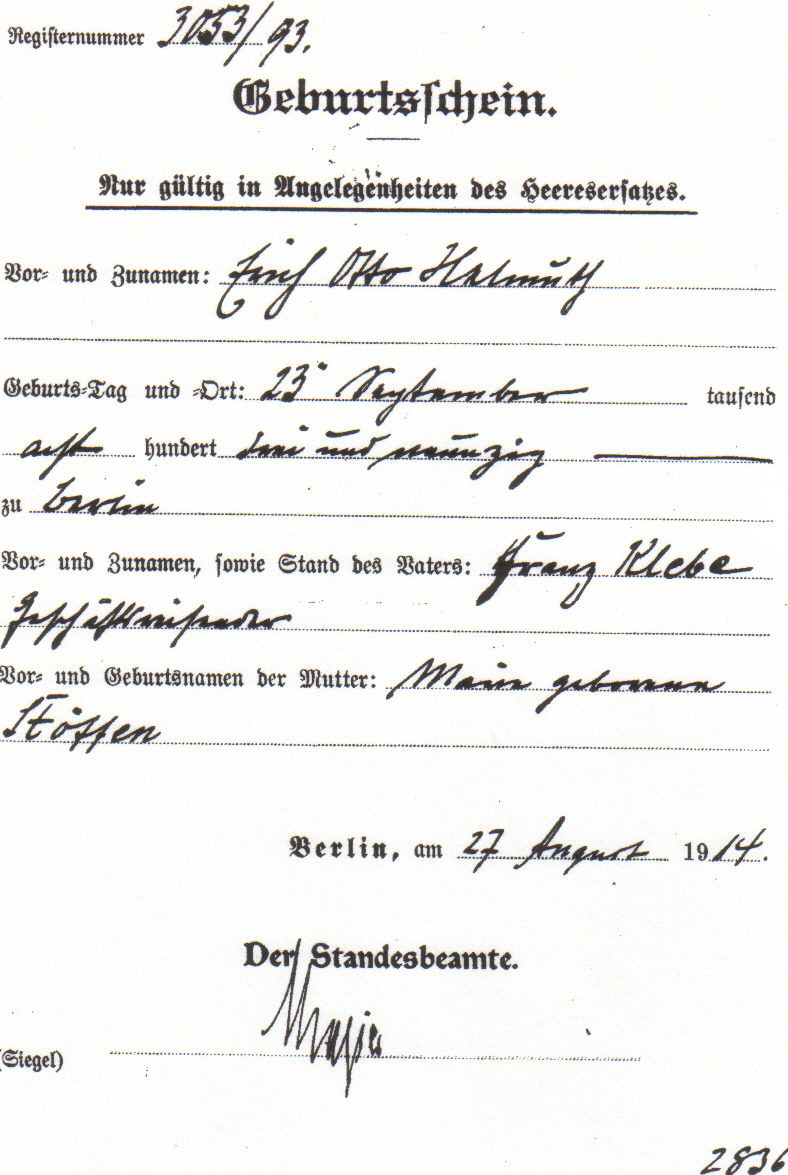 Registernummer 3053/93.
Geburtsschein.
Nur gültig in Angelegenheiten des Heeresersatzes.
Vor- und Zunamen: Erich Otto Helmuth
Geburts-Tag und -Ort: 23. September tausend
acht hundert drei und neunzig
zu Berlin
Vor- und Zunamen, sowie Stand des Vaters: Franz Klebe
Geschäftsreisender
Vor- und Geburtsnamen der Mutter: Marie geborene
Stöffen
Berlin, am 27 August 1914.
Der Standesbeamte.
(Siegel)
2836